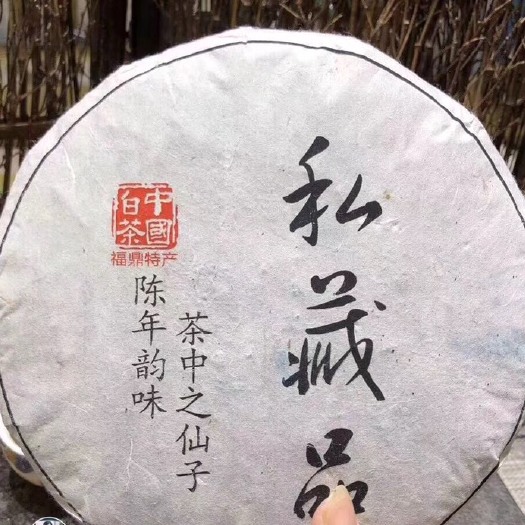 私藏品
茶中之仙子
陈年韵味
中國白茶
福鼎特产